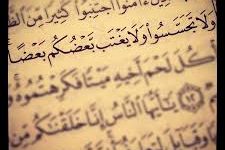 ءَامَنُوا۟ ٱجْتَنِبُوا۟ كَثِيرًا مِّنَ
وَلَا تَجَسَّسُوا۟ وَلَا يَغْتَب بَّعْضُكُم بَعْضًا
لَحْمَ أَخِيهِ مَيْتًا فَكَرِهْتُمُوهُ
١٢ يَٰٓأَيُّهَا ٱلنَّاسُ إِنَّا خَلَقْنَٰكُم مِّن